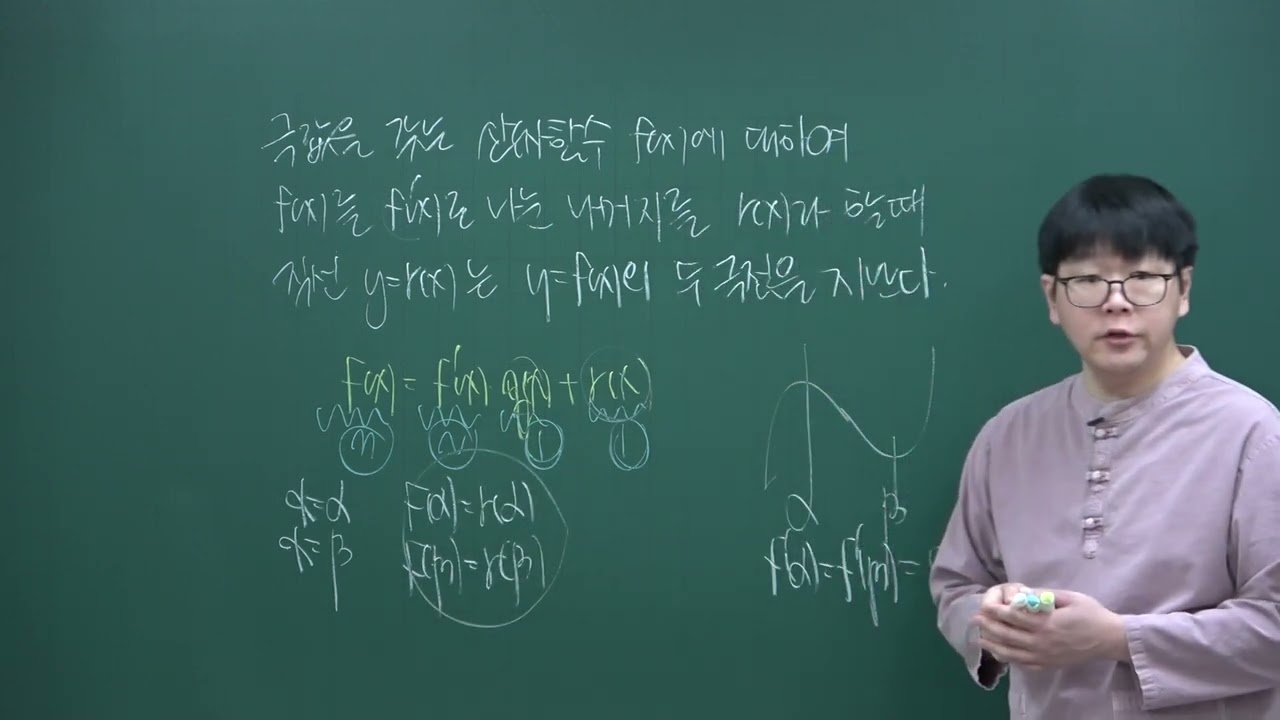 극값을 갖는 삼차함수 f(x)에 대하여
f(x)를 f'(x)로 나눈 나머지를 r(x)라 할때
직선 y=r(x)는 y=f(x)의 두 극점을 지난다.
f(x) = f'(x)·Q(x) + r(x)
③ ② ① ①
x=α f(α)=r(α)
x=β f(β)=r(β)
α β
f'(α)=f'(β)=